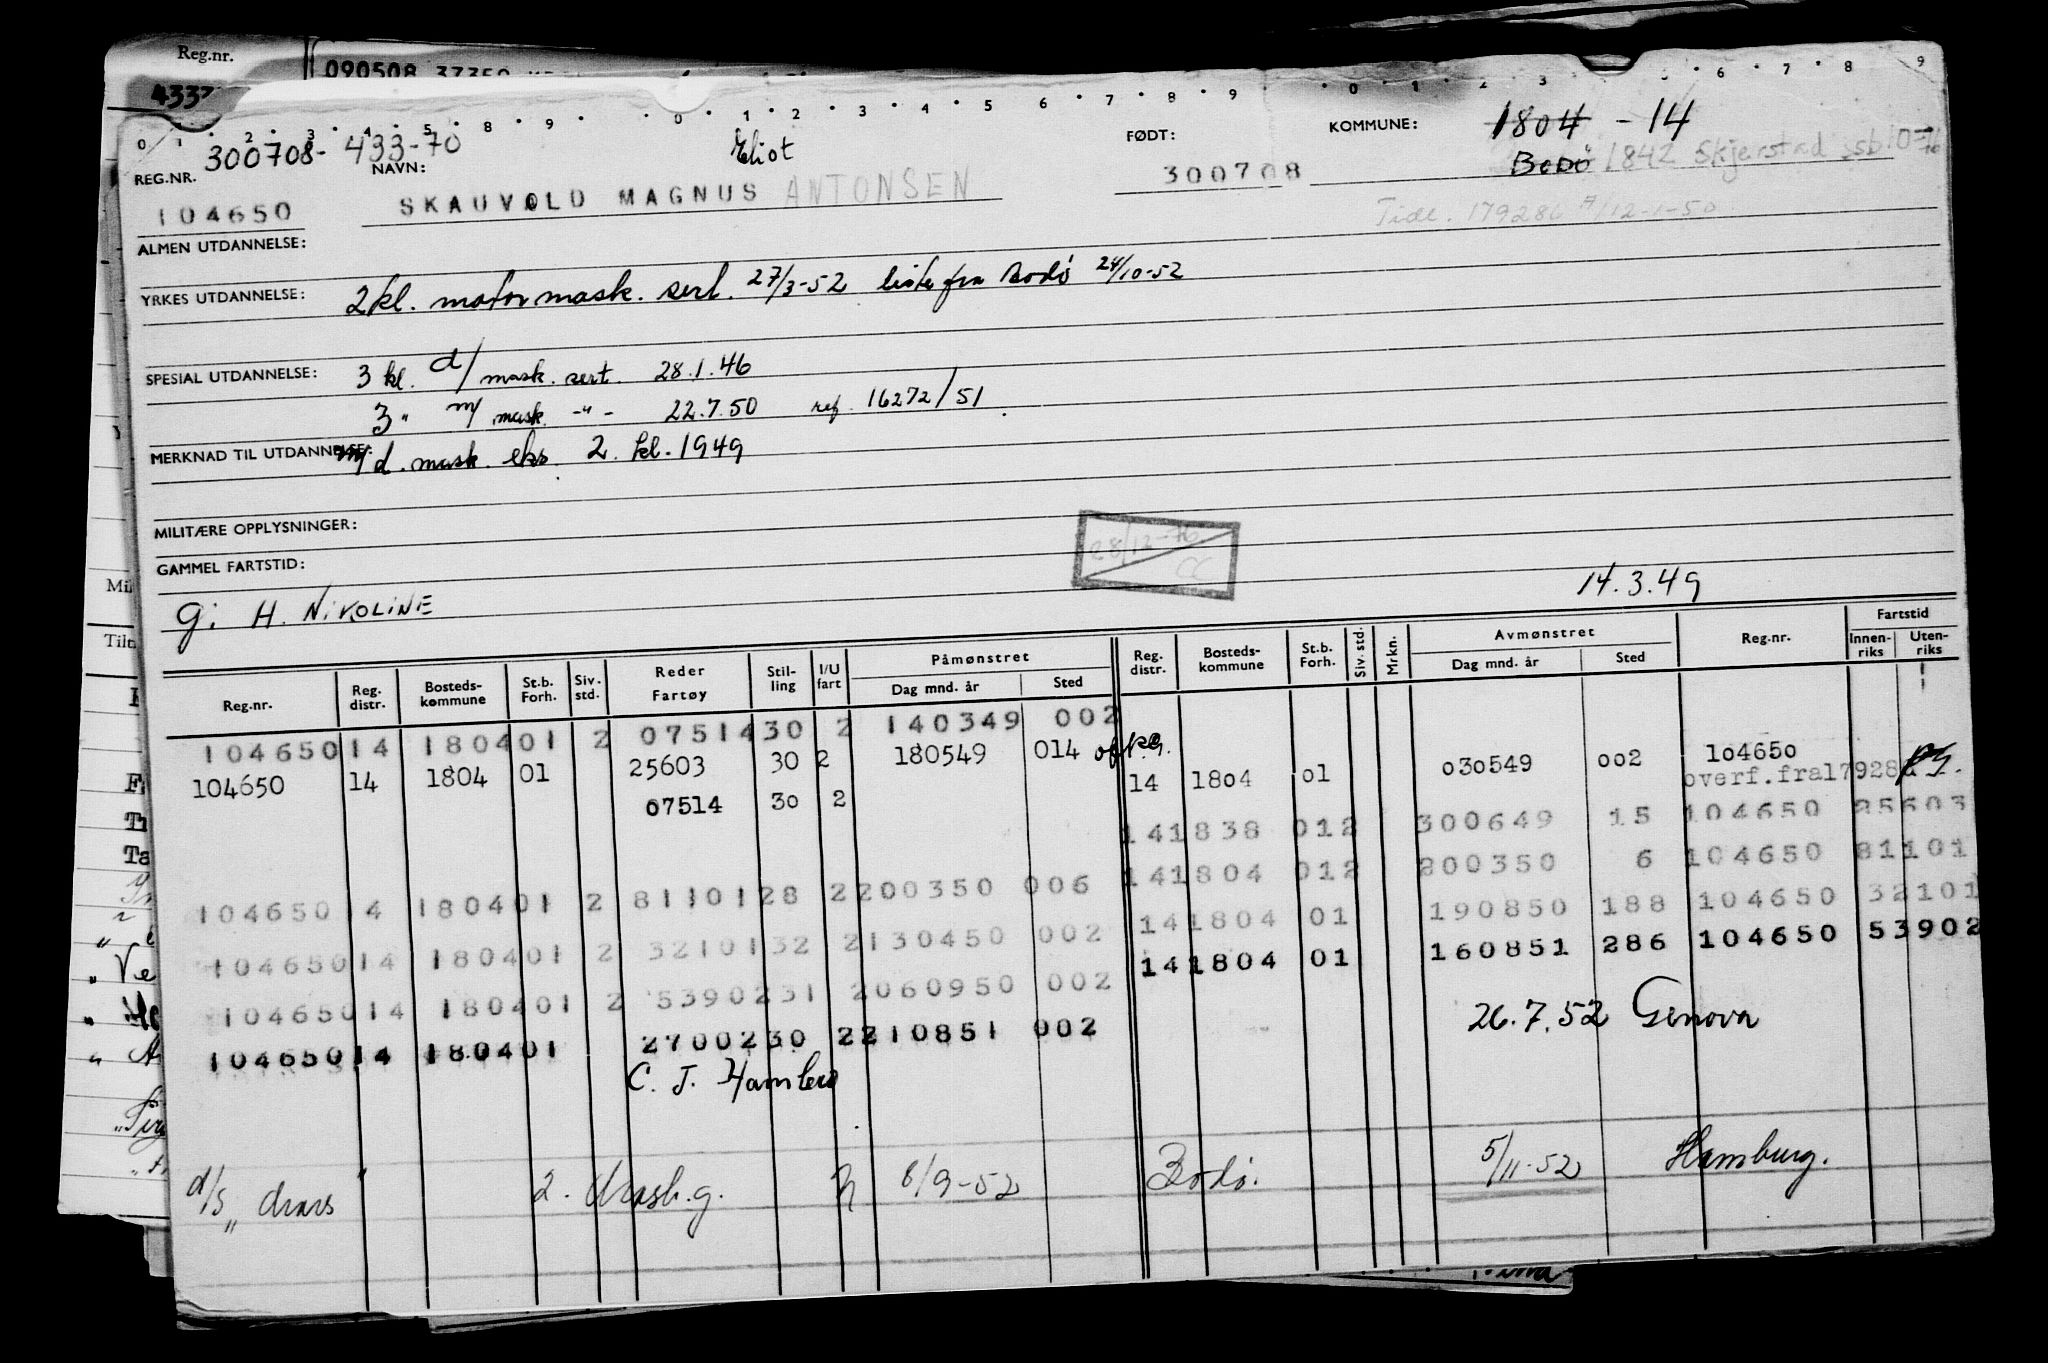 Reg.nr.
090508 37350
4337
0 1 2 3 4 5 8 9 0 1 2 3 4 5 6 7 8 9 0 1 2 3 5 6 7 8 9
300708- 433-70
Eliot
FØDT:
KOMMUNE:
1804 - 14
REG.NR.
NAVN:
Bodø 1842 Skjerstad ssb 10
104650
SKAUVOLD MAGNUS ANTONSEN
300708
Tidl. 179286 A/12-1-50
ALMEN UTDANNELSE:
YRKES UTDANNELSE: 2 kl. motormask. sert. 27/3-52 liste fra Bodø 24/10-52
SPESIAL UTDANNELSE: 3 kl. d/ mask. sert. 28.1.46
3 " m/ mask. -"- 22.7.50 ref. 16272/51
MERKNAD TIL UTDANNELSE: m/d. mask. eks. 2. kl. 1949
MILITÆRE OPPLYSNINGER:
28/12-76
CC
GAMMEL FARTSTID:
g: H. NIKOLINE
14.3.49
Reg.nr. Reg. distr. Bosteds-kommune St.b. Forh. Siv. std. Reder Fartøy Stil-ling I/U fart Påmønstret Dag mnd. år Sted Reg. distr. Bosteds-kommune St.b. Forh. Siv. std. Mrkn. Avmønstret Dag mnd. år Sted Reg.nr. Fartstid Innen-riks Uten-riks
104650 14 1804 01 2 07514 30 2 140349 002
104650 14 1804 01 25603 30 2 180549 014 14 1804 01 030549 002 104650
overf.fra17928
07514 30 2
14 1838 012 300649 15 104650 25603
14 1804 012 200350 6 104650 81101
104650 14 1804 01 2 81101 28 2 200350 006 14 1804 01 190850 188 104650 32101
104650 14 1804 01 2 32101 32 2 130450 002 14 1804 01 160851 286 104650 53902
104650 14 1804 01 2 53902 31 2 060950 002
26.7.52 Genova
104650 14 1804 01 27002 30 2 210851 002
C. J. Hambro
d/s " 2. 8/9-52 Bodø. 5/11-52 Hamburg.